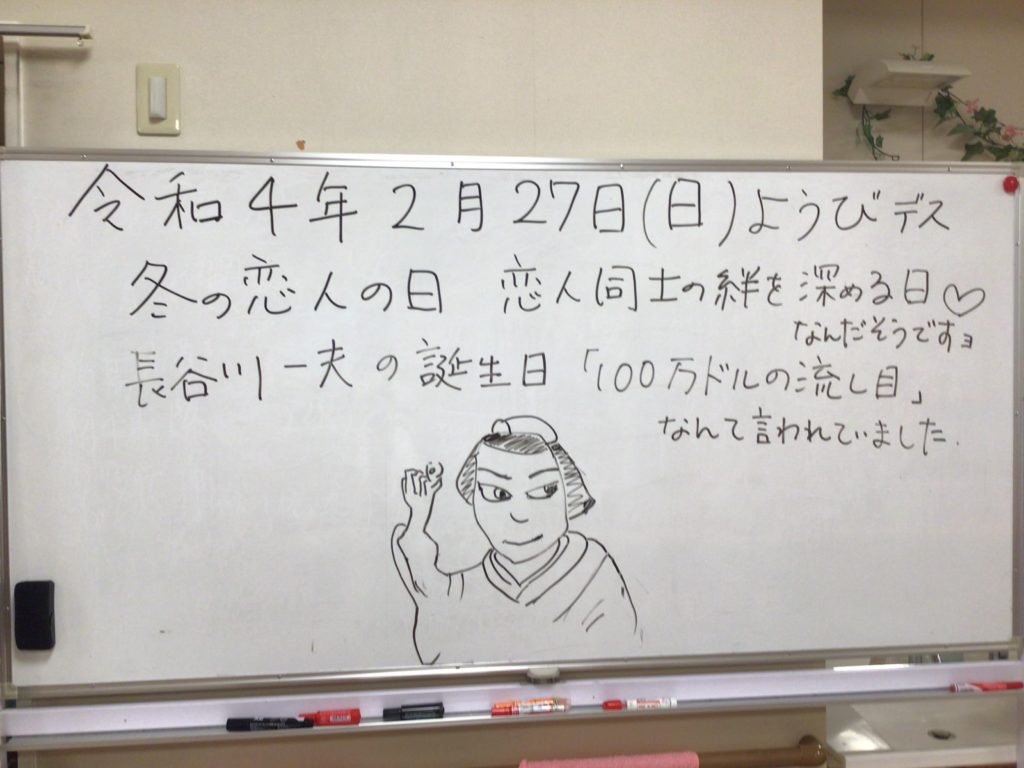 令和4年2月27日(日)ようびデス
冬の恋人の日 恋人同士の絆を深める日♡
なんだそうですョ
長谷川一夫の誕生日「100万ドルの流し目」
なんて言われていました.